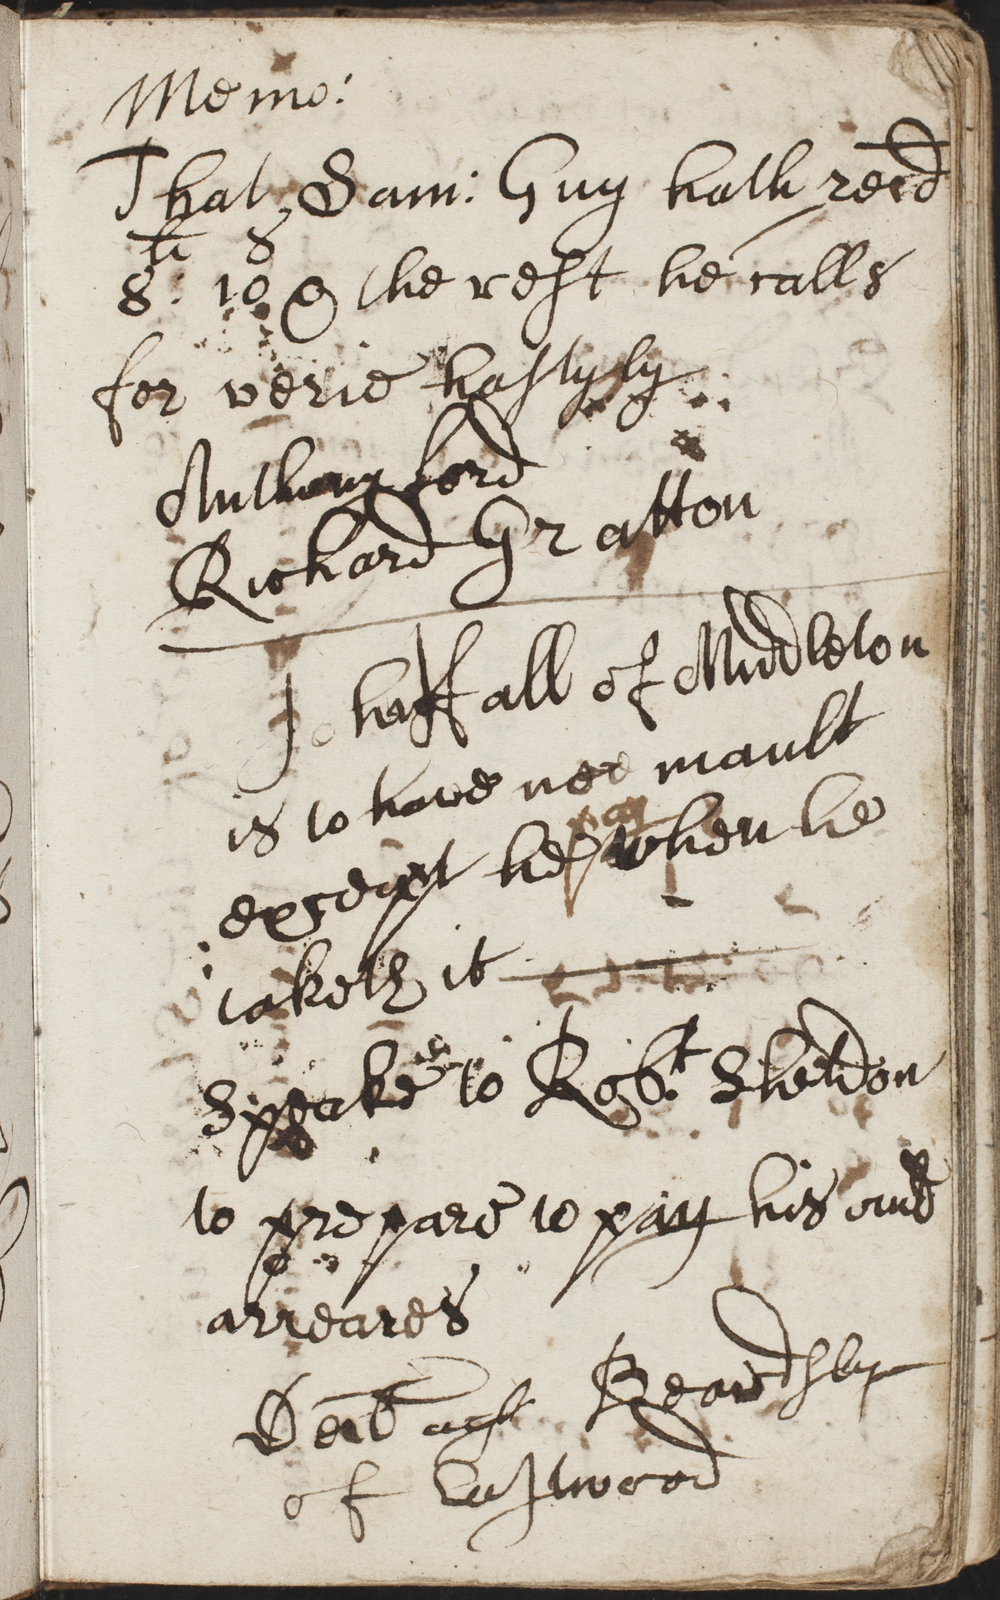 Memo:
That Sam: Guy hath recd
li s
8: 10 & the rest he calls
for verie hastyly
Anthony ford
Richard Gratton
Jo hall of Middleton
is to have noe mault
except he pay when he
taketh it
Speake to Robt. Sheldon
to prepare to pay his
arreares
agt Beardsly
of Eastwood